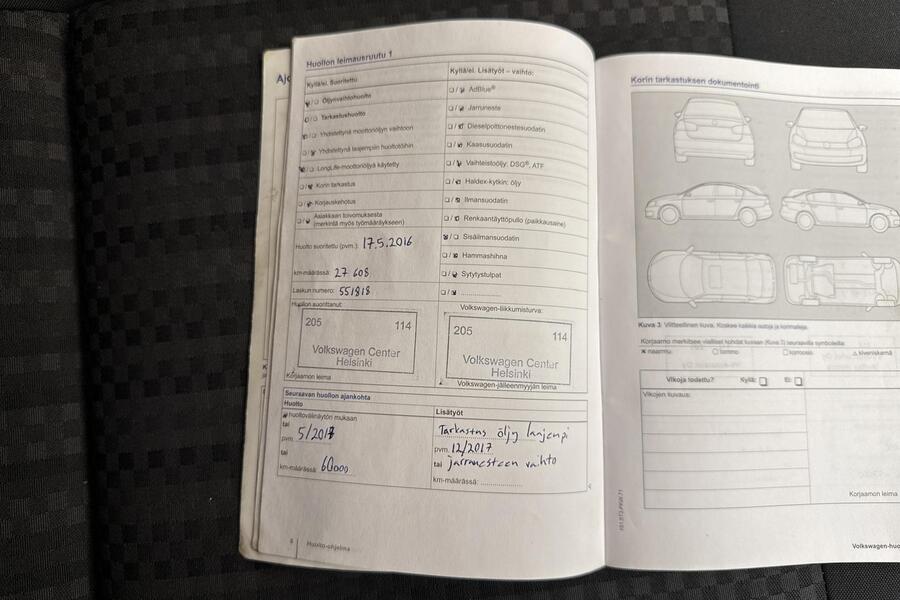 Ajo
Huollon leimausruutu 1
Kyllä/ei. Suoritettu
☑/☐ Öljynvaihtohuolto
☑/☐ Tarkastushuolto
☑/☐ Yhdistettynä moottoriöljyn vaihtoon
☐/☑ Yhdistettynä laajempiin huoltotöihin
☑/☐ LongLife-moottoriöljyä käytetty
☐/☑ Korin tarkastus
☐/☑ Korjauskehotus
☐/☑ Asiakkaan toivomuksesta
(merkintä myös työmääräykseen)
Huolto suoritettu (pvm.): 17.5.2016
km-määrässä: 27 608
Laskun numero: 551818
Huollon suorittanut:
205 114
Volkswagen Center
Helsinki
Korjaamon leima
Kyllä/ei. Lisätyöt – vaihto:
☐/☑ AdBlue®
☐/☑ Jarruneste
☐/☑ Dieselpolttonestesuodatin
☐/☑ Kaasusuodatin
☐/☑ Vaihteistoöljy: DSG®, ATF
☐/☑ Haldex-kytkin: öljy
☐/☑ Ilmansuodatin
☐/☑ Renkaantäyttöpullo (paikkausaine)
☑/☐ Sisäilmansuodatin
☐/☑ Hammashihna
☐/☑ Sytytystulpat
☐/☑ ....................
Volkswagen-liikkumisturva:
205 114
Volkswagen Center
Helsinki
Volkswagen-jälleenmyyjän leima
Seuraavan huollon ajankohta
Huolto
huoltovälinäytön mukaan
tai
pvm. 5/2017
tai
km-määrässä: 60000
Lisätyöt
Tarkastus öljy laajempi
pvm. 12/2017
tai jarrunesteen vaihto
km-määrässä: ....................
6 Huolto-ohjelma
Korin tarkastuksen dokumentointi
Kuva 3 Viitteellinen kuva. Koskee kaikkia autoja ja korimalleja.
Korjaamo merkitsee vialliset kohdat kuvaan (Kuva 3) seuraavilla symboleilla:
✕ naarmu ○ lommo □ korroosio △ kiveniskemä
Vikoja todettu? Kyllä: ☐ Ei: ☐
Vikojen kuvaus:
Korjaamon leima
Volkswagen-huo